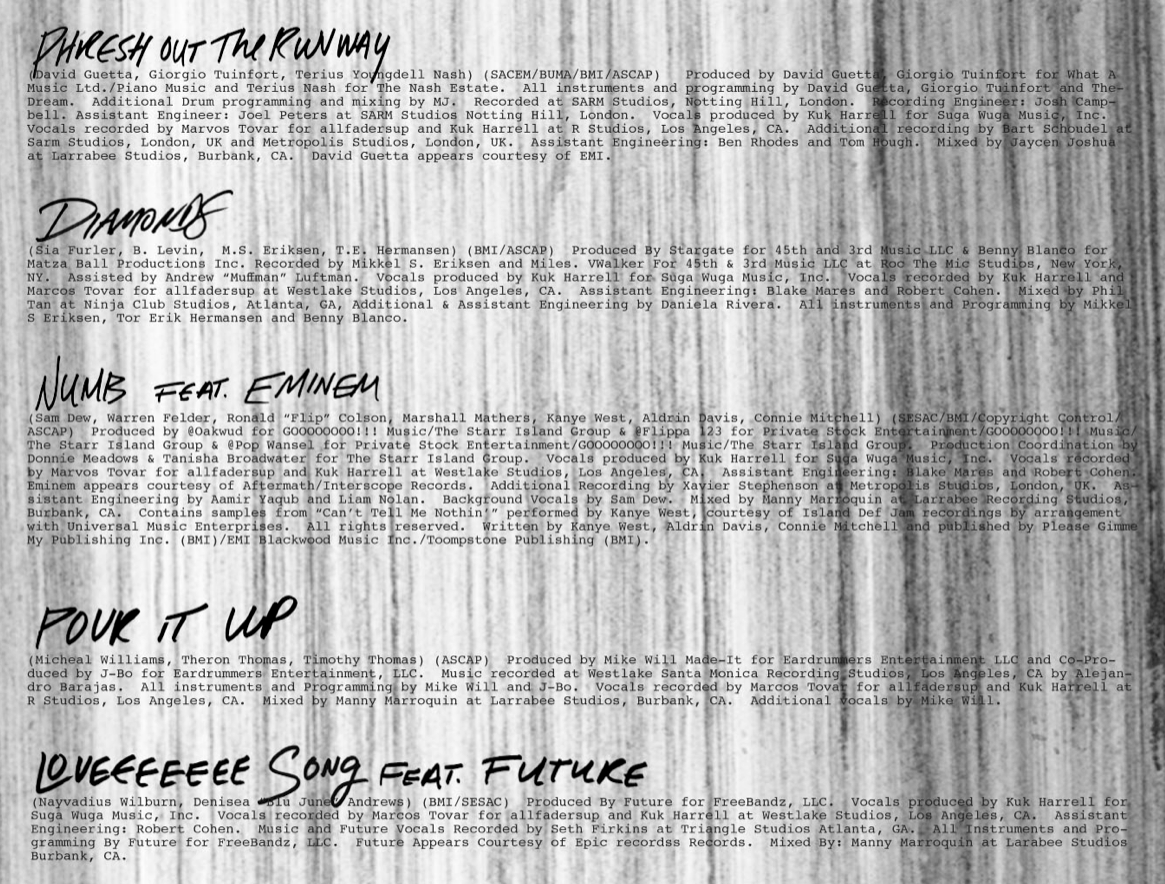 PHRESH OUT The RUNWAY
(David Guetta, Giorgio Tuinfort, Terius Youngdell Nash) (SACEM/BUMA/BMI/ASCAP)   Produced by David Guetta, Giorgio Tuinfort for What A
Music Ltd./Piano Music and Terius Nash for The Nash Estate.  All instruments and programming by David Guetta, Giorgio Tuinfort and The-
Dream.  Additional Drum programming and mixing by MJ.  Recorded at SARM Studios, Notting Hill, London.  Recording Engineer: Josh Camp-
bell. Assistant Engineer: Joel Peters at SARM Studios Notting Hill, London.  Vocals produced by Kuk Harrell for Suga Wuga Music, Inc.
Vocals recorded by Marvos Tovar for allfadersup and Kuk Harrell at R Studios, Los Angeles, CA.  Additional recording by Bart Schoudel at
Sarm Studios, London, UK and Metropolis Studios, London, UK.  Assistant Engineering: Ben Rhodes and Tom Hough.  Mixed by Jaycen Joshua
at Larrabee Studios, Burbank, CA.  David Guetta appears courtesy of EMI.
DIAMONDS
(Sia Furler, B. Levin,  M.S. Eriksen, T.E. Hermansen) (BMI/ASCAP)  Produced By Stargate for 45th and 3rd Music LLC & Benny Blanco for
Matza Ball Productions Inc. Recorded by Mikkel S. Eriksen and Miles. VWalker For 45th & 3rd Music LLC at Roc The Mic Studios, New York,
NY.  Assisted by Andrew “Muffman” Luftman.  Vocals produced by Kuk Harrell for Suga Wuga Music, Inc.  Vocals recorded by Kuk Harrell and
Marcos Tovar for allfadersup at Westlake Studios, Los Angeles, CA.  Assistant Engineering: Blake Mares and Robert Cohen.  Mixed by Phil
Tan at Ninja Club Studios, Atlanta, GA, Additional & Assistant Engineering by Daniela Rivera.  All instruments and Programming by Mikkel
S Eriksen, Tor Erik Hermansen and Benny Blanco.
NUMB FEAT. EMINEM
(Sam Dew, Warren Felder, Ronald “Flip” Colson, Marshall Mathers, Kanye West, Aldrin Davis, Connie Mitchell) (SESAC/BMI/Copyright Control/
ASCAP)  Produced by @Oakwud for GOOOOOOOO!!! Music/The Starr Island Group & @Flippa 123 for Private Stock Entertainment/GOOOOOOOO!!! Music/
The Starr Island Group & @Pop Wansel for Private Stock Entertainment/GOOOOOOOO!!! Music/The Starr Island Group.  Production Coordination by
Donnie Meadows & Tanisha Broadwater for The Starr Island Group.  Vocals produced by Kuk Harrell for Suga Wuga Music, Inc.  Vocals recorded
by Marvos Tovar for allfadersup and Kuk Harrell at Westlake Studios, Los Angeles, CA.  Assistant Engineering: Blake Mares and Robert Cohen.
Eminem appears courtesy of Aftermath/Interscope Records.  Additional Recording by Xavier Stephenson at Metropolis Studios, London, UK.  As-
sistant Engineering by Aamir Yaqub and Liam Nolan.  Background Vocals by Sam Dew.  Mixed by Manny Marroquin at Larrabee Recording Studios,
Burbank, CA.  Contains samples from “Can’t Tell Me Nothin’” performed by Kanye West, courtesy of Island Def Jam recordings by arrangement
with Universal Music Enterprises.  All rights reserved.  Written by Kanye West, Aldrin Davis, Connie Mitchell and published by Please Gimme
My Publishing Inc. (BMI)/EMI Blackwood Music Inc./Toompstone Publishing (BMI).
POUR IT UP
(Micheal Williams, Theron Thomas, Timothy Thomas) (ASCAP)  Produced by Mike Will Made-It for Eardrummers Entertainment LLC and Co-Pro-
duced by J-Bo for Eardrummers Entertainment, LLC.  Music recorded at Westlake Santa Monica Recording Studios, Los Angeles, CA by Alejan-
dro Barajas.  All instruments and Programming by Mike Will and J-Bo.  Vocals recorded by Marcos Tovar for allfadersup and Kuk Harrell at
R Studios, Los Angeles, CA.  Mixed by Manny Marroquin at Larrabee Studios, Burbank, CA.  Additional Vocals by Mike Will.
LOVEEEEEEE SONG FEAT. FUTURE
(Nayvadius Wilburn, Denisea “Blu June” Andrews) (BMI/SESAC)  Produced By Future for FreeBandz, LLC.  Vocals produced by Kuk Harrell for
Suga Wuga Music, Inc.  Vocals recorded by Marcos Tovar for allfadersup and Kuk Harrell at Westlake Studios, Los Angeles, CA.  Assistant
Engineering: Robert Cohen.  Music and Future Vocals Recorded by Seth Firkins at Triangle Studios Atlanta, GA.  All Instruments and Pro-
gramming By Future for FreeBandz, LLC.  Future Appears Courtesy of Epic recordss Records.  Mixed By: Manny Marroquin at Larabee Studios
Burbank, CA.